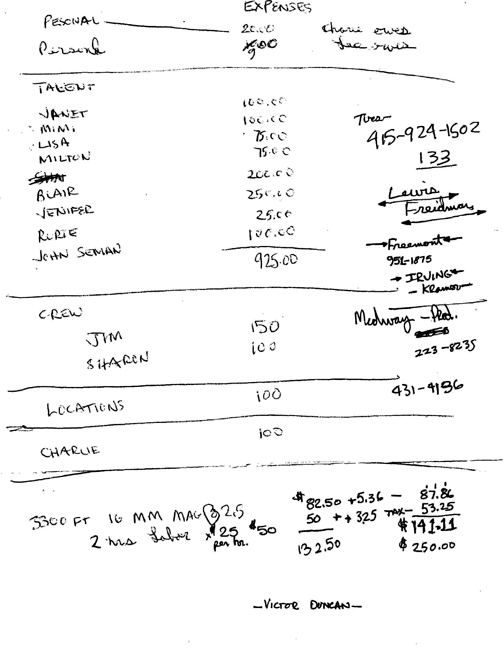 EXPENSES
PESONAL 20.00 Charie owes
Personal owes
TALENT
JANET 100.00
MIMI 100.00
LISA 75.00
MILTON 75.00
BLAIR 200.00
VENIFER 250.00
RORIE 25.00
JOHN SEMAN 100.00
925.00
Tves-
415-924-1502
133
Lewis
Freidman
Freemont
951-1875
IRVING
- Kramer
CREW
JIM 150
SHARON 100
Medway - Prod.
223-8235
LOCATIONS 100
431-4196
CHARLIE 100
3300 FT 16 MM MAG @ 2.5 $82.50 + 5.36 - 87.86
2 hrs labor x $25 per hr. $50 50 + + 325 TAX- 53.25
132.50 $141.11
$250.00
- VICTOR DUNCAN -